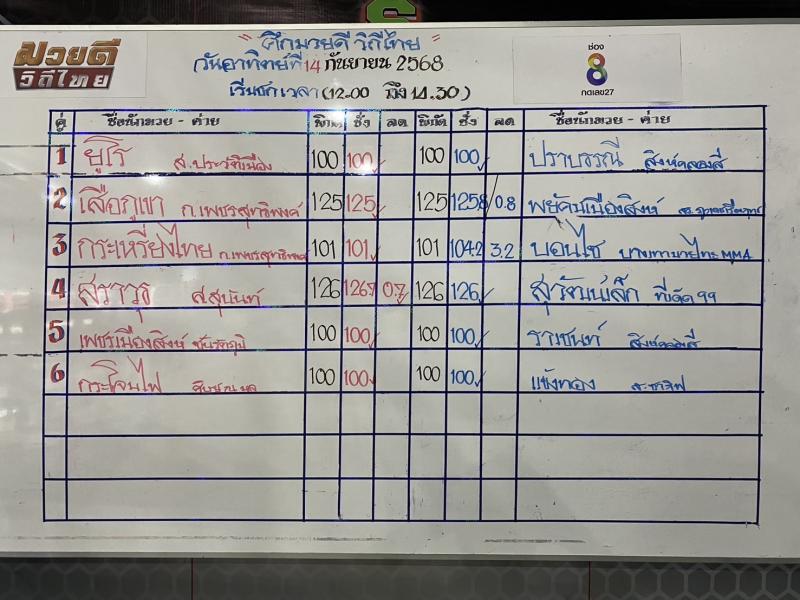 " ศึกมวยดี วิถีไทย "
มวยดี
วิถีไทย
วันอาทิตย์ที่ 14 กันยายน 2568
เริ่มชกเวลา (12.00 ถึง 14.30)
ช่อง
8
กดเลข27
คู่ ชื่อนักมวย - ค่าย พิกัด ชั่ง ลด พิกัด ชั่ง ลด ชื่อนักมวย - ค่าย
1 ยูโร ส.ประวัติเมือง 100 100 100 100 ปราบธรณี สิงห์คลองสี่
2 เสือภูเขา ก.เพชรสุทธิพงศ์ 125 125 125 125.8 0.8 พยัคฆ์เมืองสิงห์
3 กระเหรี่ยงไทย ก.เพชรสุทธิพงศ์ 101 101 101 104.2 3.2 บอนไซ MMA
4 สราวุธ ส.สุนันท์ 126 126.7 0.7 126 126 สุวัฒน์เล็ก ที่ดัด 99
5 เพชรเมืองสิงห์ 100 100 100 100 ราเชนท์ สิงห์คลองสี่
6 กระโจนไฟ 100 100 100 100 แข้งทอง